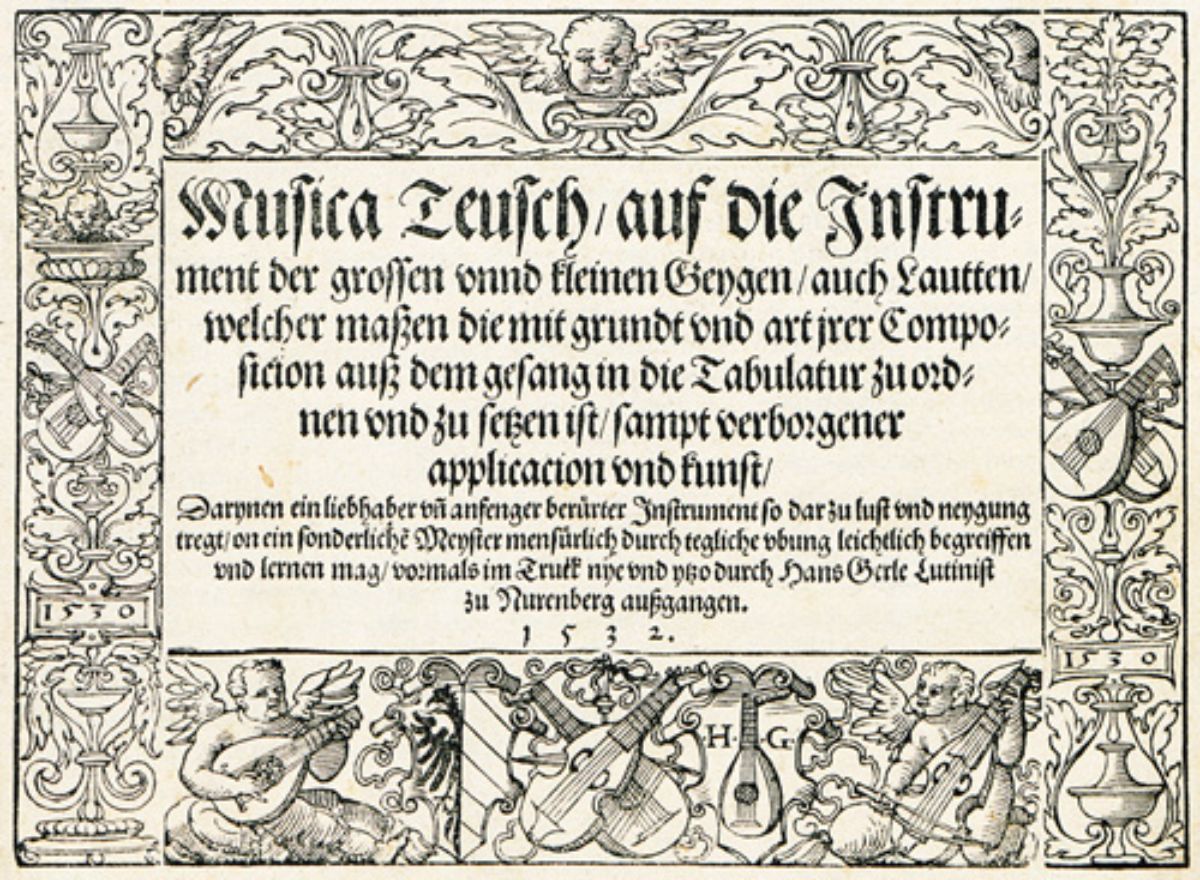 Musica Teusch/ auf die Instru⸗
ment der grossen vnnd kleinen Geygen/ auch Lautten/
welcher maßen die mit grundt vnd art jrer Compo⸗
sicion auß dem gesang in die Tabulatur zu ord⸗
nen vnd zu setzen ist/ sampt verborgener
applicacion vnd kunst/
Darynen ein liebhaber vñ anfenger berürter Instrument so dar zu lust vnd neygung
tregt/ on ein sonderlichẽ Meyster mensürlich durch tegliche vbung leichtlich begreiffen
vnd lernen mag/ vormals im Trukk nye vnd ytzo durch Hans Gerle Lutinist
zu Nurenberg außgangen.
1532.
1530
1530
H·G·